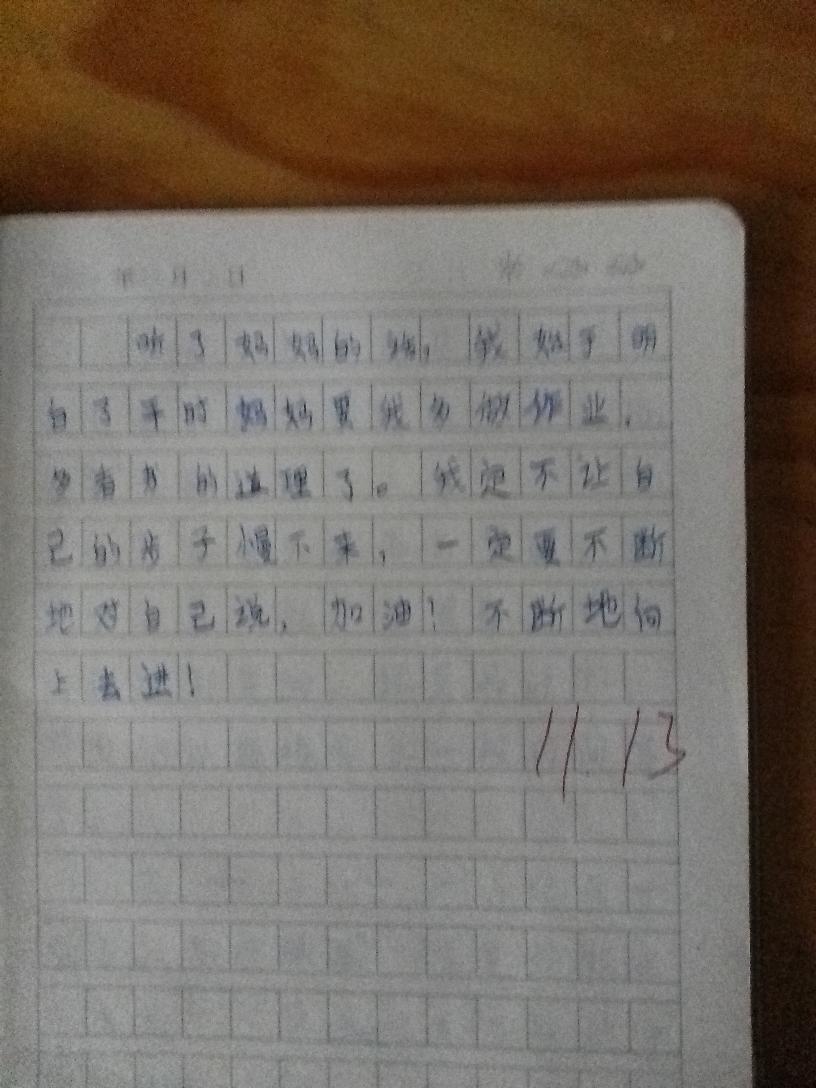 年 月 日
听了妈妈的话，我始于明
白了平时妈妈要我多做作业，
多看书的道理了。我定不让自
己的步子慢下来，一定要不断
地对自己说，加油！不断地向
上去进！
11.13